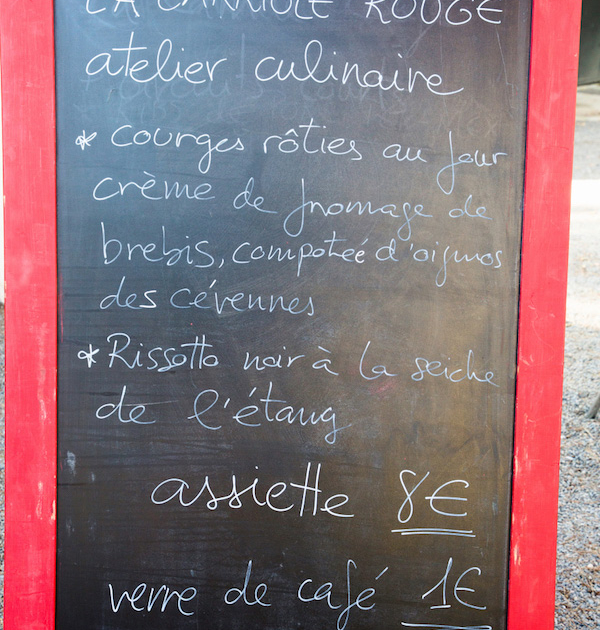 LA CARRIOLE ROUGE
atelier culinaire
* courges rôties au four
crème de fromage de
brebis, compoteé d'oignos
des cévennes
* Rissotto noir à la seiche
de l'étang
assiette 8€
verre de café 1€